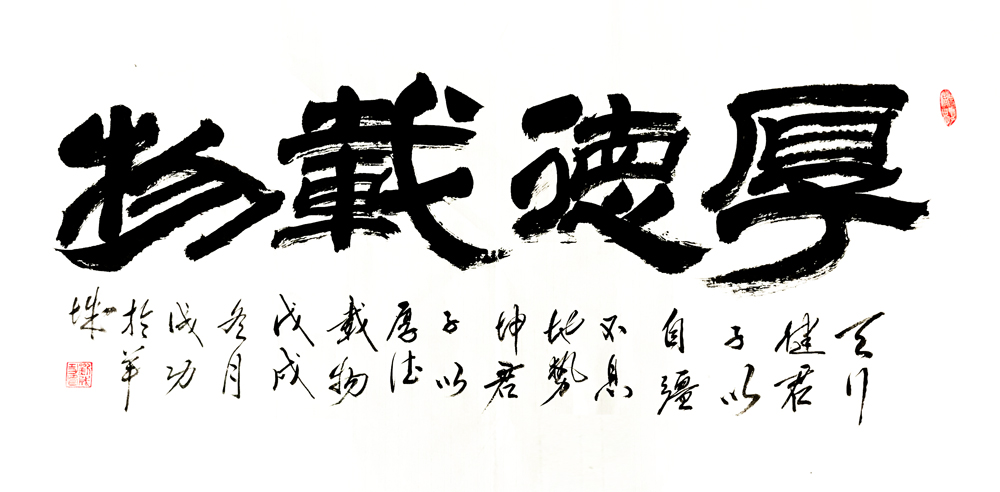 厚德載物
天行
健君
子以
自彊
不息
地勢
坤君
子以
厚德
載物
戊戌
冬月
成功
於羊
城